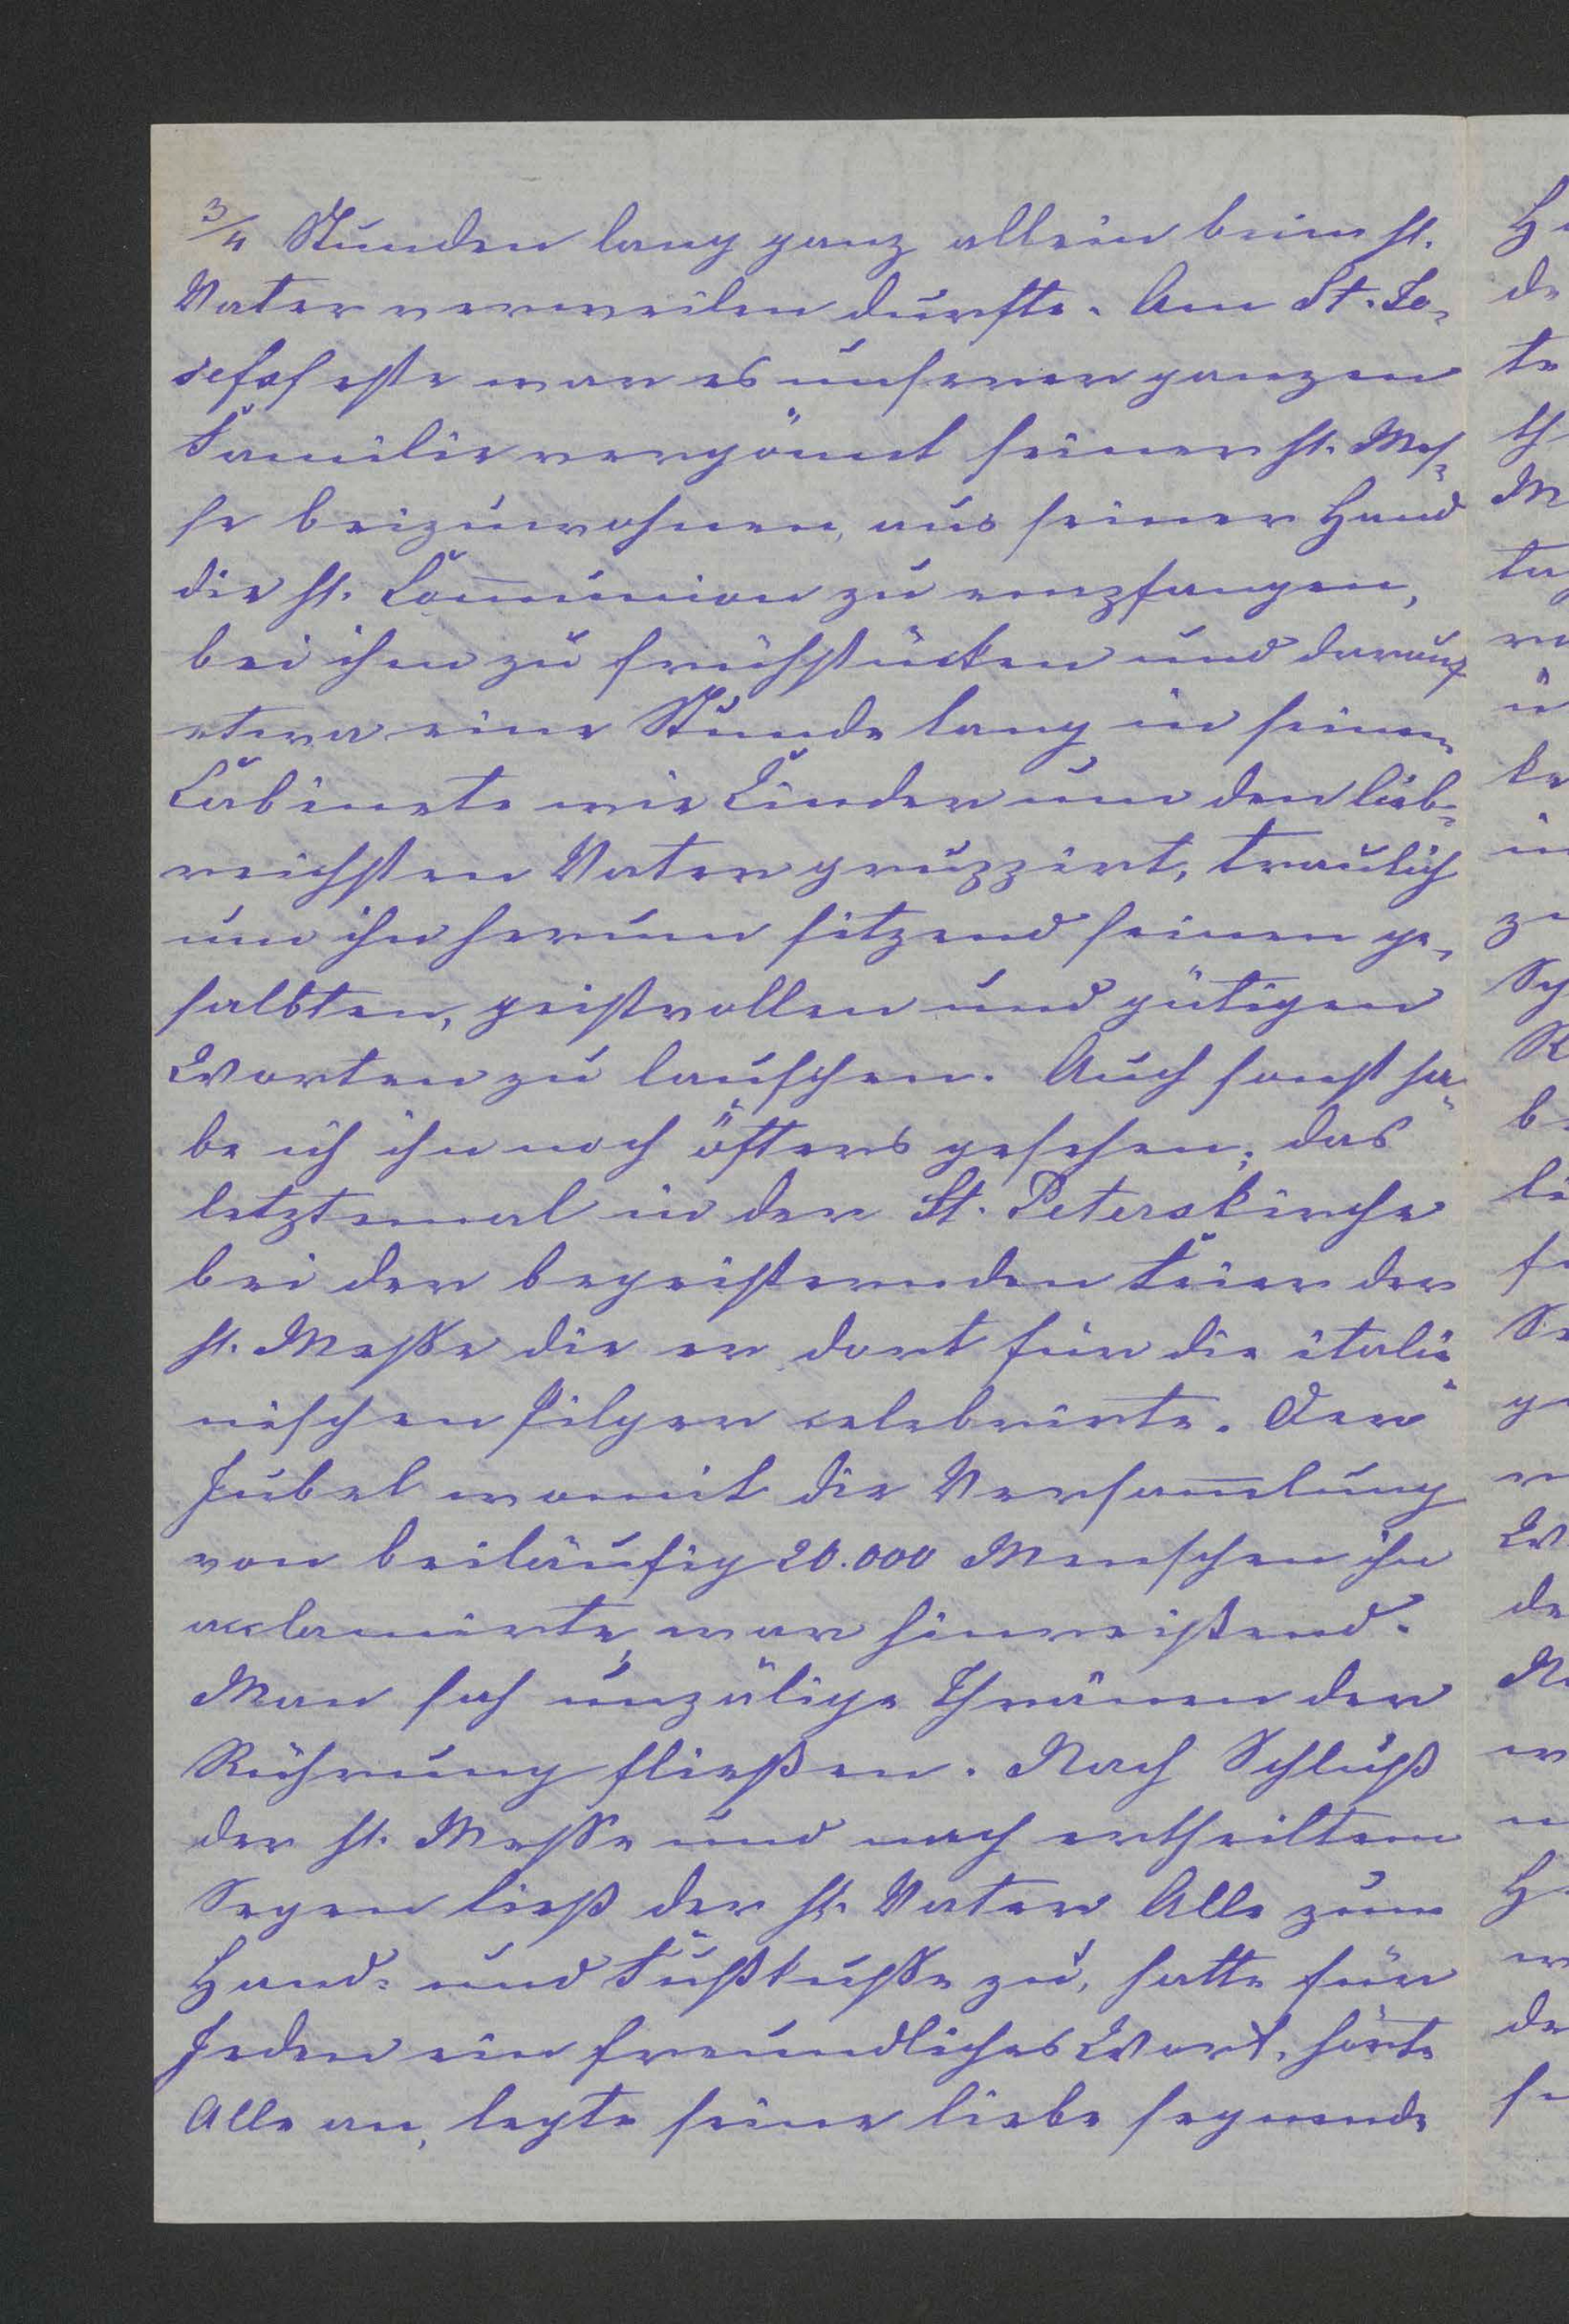 3/4 Stunden lang ganz allein beim hl.
Vater verweilen durfte. Am St. Jo-
sefsfeste war es unserer ganzen
Familie vergönnt seiner hl. Mes-
se beizuwohnen, aus seiner Hand
die hl. Com̅union zu empfangen,
bei ihm zu frühstücken und darauf
etwa eine Stunde lang in seinem
Cabinete wie Kinder um den lieb-
reichsten Vater gruppirt, traulich
um ihn herum sitzend seinen ge-
salbten, geistvollen und gütigen
Worten zu lauschen. Auch sonst ha-
be ich ihn noch öfters gesehen; das
letztemal in der St. Peterskirche
bei der begeisternden Feier der
hl. Messe die er dort für die italie-
nischen Pilger celebrirte. Der
Jubel womit die Versam̅lung
von beiläufig 20.000 Menschen ihn
acclamirte, war hinreißend.
Man sah unzälige Thränen der
Rührung fließen. Nach Schluß
der hl. Messe und nach ertheiltem
Segen ließ der hl. Vater Alle zum
Hand- und Fußkusse zu, hatte für
Jeden ein freundliches Wort, hörte
Alle an, legte seine liebe segnende